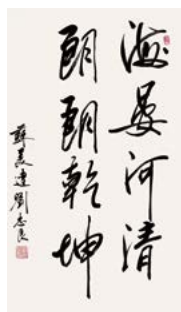 海晏河清
朗朗乾坤
蘇美達劉志良